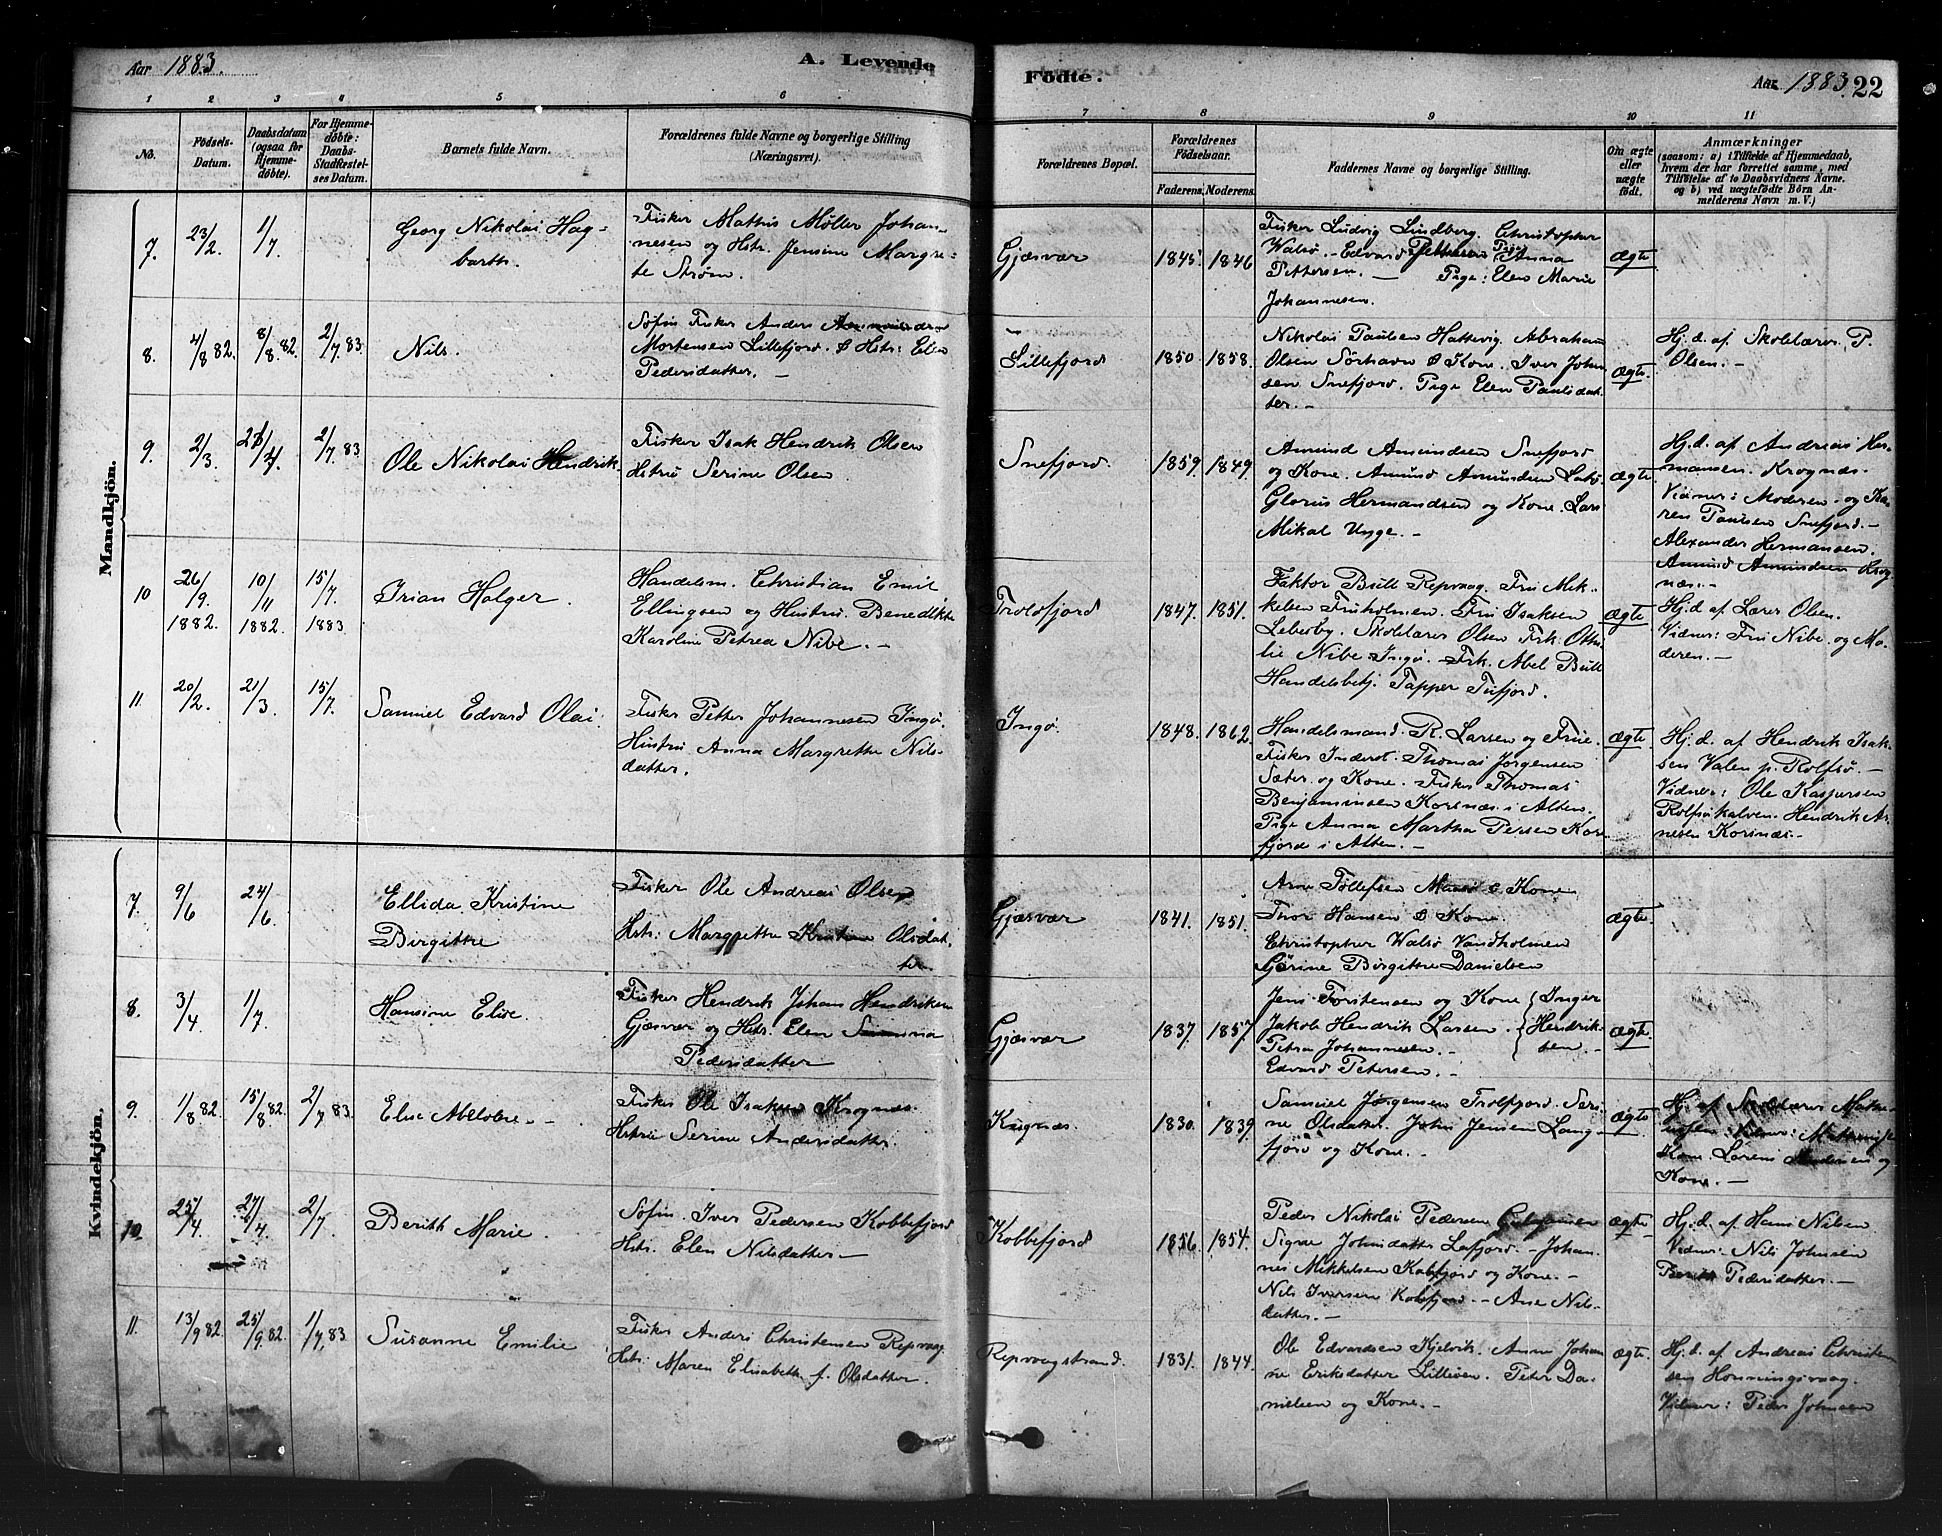 Aar 1883.
A. Levende
Födte.
Aar 1883. 22
1 2 3 4 5 6 7 8 9 10 11
No.
Födsels-
Datum.
Daabsdatum
(ogsaa for
Hjemme-
döbte).
For Hjemme-
döbte:
Daabs-
Stadfæstel-
ses Datum.
Barnets fulde Navn.
Forældrenes fulde Navne og borgerlige Stilling
(Næringsvei).
Forældrenes Bopæl.
Forældrenes
Födselsaar.
Faderens. Moderens.
Faddernes Navne og borgerlige Stilling.
Om ægte
eller
uægte
födt.
Anmærkninger
(saasom: a) i Tilfælde af Hjemmedaab,
hvem der har forrettet samme, med
Tilföielse af to Daabsvidners Navne.
og b) ved uægtefödte Börn An-
melderens Navn m. V.)
Mandkjön.
7. 23/2 1/7
Georg Nikolai Hag-
barth.
Fisker Mathis Møller Johan-
nesen og Hstr. Jensine Margre-
te Strøm.
Gjæsvær
1845. 1846
Fisker Ludvig Lindberg. Christopher
Walsø. Edvard Pettersen Pige Anna
Pettersen. — Pige: Elen Marie
Johannesen.
ægte
8. 4/8 82. 8/8 82. 2/7 83
Nils.
Søfin Fisker Anders
Mortensen Lillefjord. & Hstr: Elen
Pedersdatter. —
Lillefjord
1850. 1858.
Nikolai Paulsen Hattevig. Abraham
Olsen Sørhavn & Kone. Iver Johan-
sen Snefjord. Pige Elen Paulsdat-
ter. —
ægte
Hj. d. af Skolelærer P.
Olsen. —
9. 2/3 2/7 83
Ole Nikolai Hendrik.
Fisker Isak Hendrik Olsen
Hstru Serine Olsen.
Snefjord.
1859. 1849.
Amund Amundsen Snefjord
og Kone. Amund Amundsen
Glorius Hermandsen og Kone. Lars
Mikal Unge. —
ægte
Hj. d. af Andreas Her-
mansen. Krognæs.
Vidner: Moderen og Ka-
ren Paulsen Snefjord. —
Alexander Hermansen.
Amund Amundsen Krog-
næs. —
10 26/9 1882 10/11 1882. 15/7 1883
Irian Holger.
Handelsm. Christian Emil
Ellingsen og Hustru Benedikte
Karoline Petrea Nibe. —
Troldfjord
1847. 1851.
Faktor Bull Repvaag. Fru Mik-
kelsen Fruholmen. Fru Isaksen
Lebesby. Skolelærer Olsen Frk. Othi-
lie Nibe Ingø. Frk. Abel Bull
Handelsbetj. Tapper Tufjord.
ægte
Hj. d. af Lærer Olsen.
Vidner: Fru Nibe og Mo-
deren. —
11. 20/2 21/3 15/7
Samuel Edvard Olai.
Fisker Petter Johannesen Ingø.
Hustru Anna Margrethe Nils-
datter.
Ingø.
1848. 1862.
Handelsmand R. Larsen og Frue.
Fisker Inderst. Thomas Jørgensen
Sæter og Kone. Fisker Thomas
Benjaminsen Korsnæs i Alten.
Pige Anna Martha Persen Kor-
fjord i Alten. —
ægte
Hj. d. af Hendrik Isak-
sen Valen p. Rolfsø. —
Vidner: Ole Kaspersen
Rolfsøkalven. Hendrik Ar-
nesen Korsnæs. —
Kvindekjön.
7. 9/6 24/6
Ellida Kristine
Birgitte
Fisker Ole Andreas Olsen
Hstr: Margrethe Olsdat-
ter
Gjæsvær
1841. 1851.
Arne Tollefsen Maasø & Kone
Thor Hansen & Kone.
Christopher Walsø Vandholmen
Gjørine Birgitte Danielsen
ægte
8. 3/4 1/7
Hansine Elise.
Fisker Hendrik Johans Hendriksen
Gjæsvær og Hstr. Elen
Pedersdatter
Gjæsvær
1837. 1857.
Jens Torstensen og Kone Inger
Jakob Hendrik Larsen. Hendrik-
Petra Johannesen. — sen. —
Edvard Petersen. —
ægte
9. 1/8 82 15/8 82. 2/7 83.
Else — —
Fisker Ole Isaksen Krognæs.
Hstru Serine Andersdatter.
Krognæs.
1830. 1839.
Samuel Jørgensen Trolfjord. Seri-
ne Olsdatter. John Jensen Lang-
fjord og Kone. —
ægte
Hj. af Skolelærer
Vidner:
Kone. Larens og
Kone. —
10. 25/4 27/4 2/7
Berith Marie.
Søfin. Iver Pedersen Kobbefjord
Hstr. Elen Nilsdatter —
Kobbefjord
1856. 1854.
Peder Nikolai Pedersen
Signe Johnsdatter Lafjord. — Johan-
nes Mikkelsen Kobfjord og Kone. —
Nils Iversen Kobfjord. — Ane Nils-
datter. —
ægte
Hj. d. af Hans Nilsen
Vidner: Nils Johnsen
Berith Pedersdatter. —
11. 13/9 82. 25/9 82 1/7 83
Susanne Emilie
Fisker Anders Christensen Repvaag
Hstr: Maren Elisabeth f. Olsdatter.
Repvaagstrand.
1831. 1844.
Ole Edvardsen Kjelvik. Anne Johan-
ne Eriksdatter. Peter Da-
nielsen og Kone. —
ægte.
Hj. d. af Andreas Christen-
sen Honningsvaag.
Vidner: Peder Johnsen